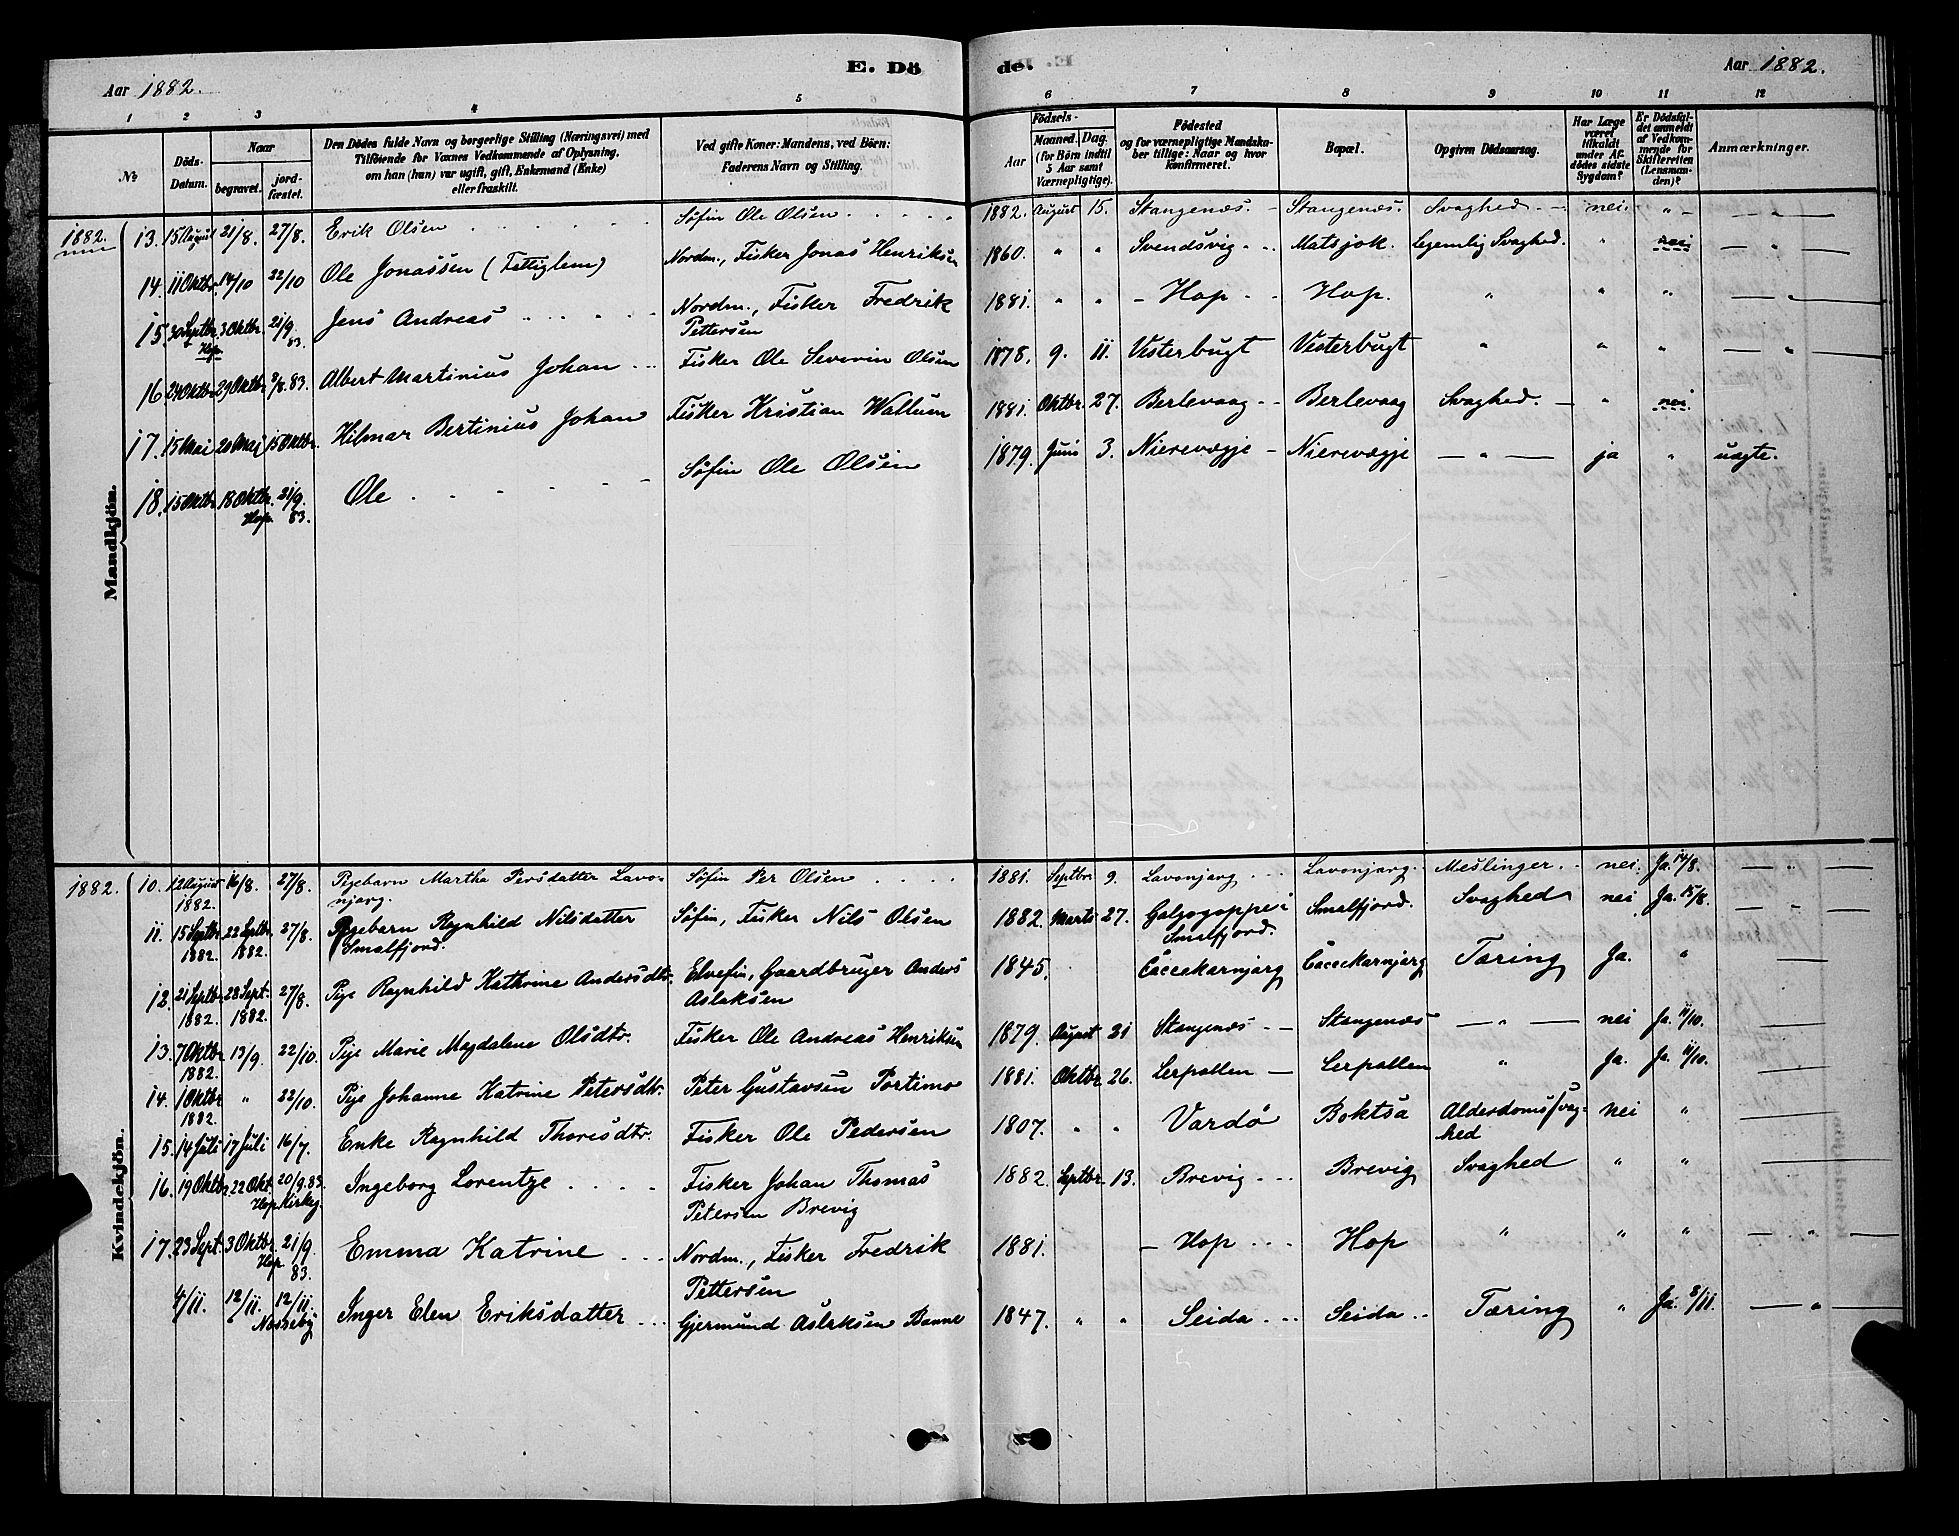 E. Dö de.
Aar 1882. Aar 1882.
1 2 3 4 5 6 7 8 9 10 11 12
№
Döds-Datum.
Naar
begravet. jordfæstet.
Den Dödes fulde Navn og borgerlige Stilling (Næringsvei) med
Tilföiende for Voxnes Vedkommende af Oplysning,
om han (hun) var ugift, gift, Enkemand (Enke)
eller fraskilt.
Ved gifte Koner: Mandens, ved Börn:
Faderens Navn og Stilling.
Födsels-
Aar Maaned. Dag.
(for Börn indtil
5 Aar samt
Værnepligtige).
Födested
og for værnepligtige Mandskaber tillige: Naar og hvor
konfirmeret.
Bopæl.
Opgiven Dödsaarsag.
Har Læge
været
tilkaldt
under Afdödes sidste
Sygdom?
Er Dödsfaldet anmeldt
af Vedkommende for
Skifteretten
(Lensmanden)?
Anmærkninger.
Mandkjön.
1882. 13. 15 August 21/8. 27/8. Erik Olsen Söfin Ole Olsen 1882. August 15. Stangenæs. Stangenæs. Svaghed. nei. "
14. 11 Oktbr. 14/10 22/10 Ole Jonassen (Fattiglem) Nordm., Fisker Jonas Henriksen 1860. " " Svendsvig Matsjok. Legemlig Svaghed. " nei "
15. 30 Septbr. 3 Oktbr. Hop. 21/9. 83. Jens Andreas Nordm., Fisker Fredrik Pettersen 1881. " " Hop Hop. " " " "
16. 24 Oktbr 29 Oktbr 9/8. 83. Albert Martinius Johan Fisker Ole Severin Olsen 1878. 9. 11. Vesterbugt Vesterbugt " " " "
17. 15 Mai 20 Mai 15 Oktbr. Hilmar Bertinius Johan Fisker Kristian Wallum 1881. Oktbr. 27. Berlevaag Berlevaag Svaghed. " nei
18. 15 Oktbr. 18 Oktbr. Hop. 21/9. 83. Ole Söfin Ole Olsen 1879. Juni 3. Nierevægje Nierevægje " ja " uægte.
Kvindekjön.
1882. 10. 12 August 1882. 16/8. 27/8. Pigebarn Martha Persdatter Lavonjarg. Söfin Per Olsen 1881. Septbr 9. Lavonjarg Lavonjarg. Meslinger. nei. Ja. 14/8. "
11. 15 Septbr. 1882. 22 Septbr. 1882. 27/8. Pigebarn Ragnhild Nilsdatter Smalfjord. Söfin, Fisker Nils Olsen 1882. Marts 27. Golgogoppe i Smalfjord. Smalfjord. Svaghed nei Ja. 15/8. "
12. 21 Septbr 1882. 28 Sept. 1882. 27/8. Pige Ragnhild Kathrine Andersdtr. Elvefin, Gaardbruger Anders Aslaksen 1845. Caccekarnjarg Caccekarnjarg Tæring Ja. "
13. 7 Oktbr 1882. 13/9. 22/10. Pige Marie Magdalene Olsdtr. Fisker Ole Andreas Henriksen 1879. August 21 Stangenæs Stangenæs " nei Ja. 11/10.
14. 1 Oktbr 1882. " 22/10. Pige Johanne Katrine Petersdtr. Peter Gustavsen Portimo 1881. Oktbr 26. Lerpollen Lerpollen " Ja. Ja. 11/10.
15. 14 Juli 17 Juli 16/7. Enke Ragnhild Thorisdtr. Fisker Ole Pedersen 1807. " " Vardö Boktsa Alderdomssvaghed nei "
16. 19 Oktbr 22 Okt. Hop. Kirkeg. 20/9. 83. Ingeborg Lorentze Fisker Johan Thomas Petersen Brevig 1882. Septbr. 13. Brevig Brevig Svaghed " "
17. 23 Sept. 3 Oktbr. Hop. 21/9. 83. Emma Katrine Nordm., Fisker Fredrik Pettersen 1881. Hop Hop " " " "
4/11. 12/11. 12/11. Næsseby Inger Elen Eriksdatter Gjermund Aslaksen Banne 1847. " " Seida Seida Tæring " Ja. 8/11. "